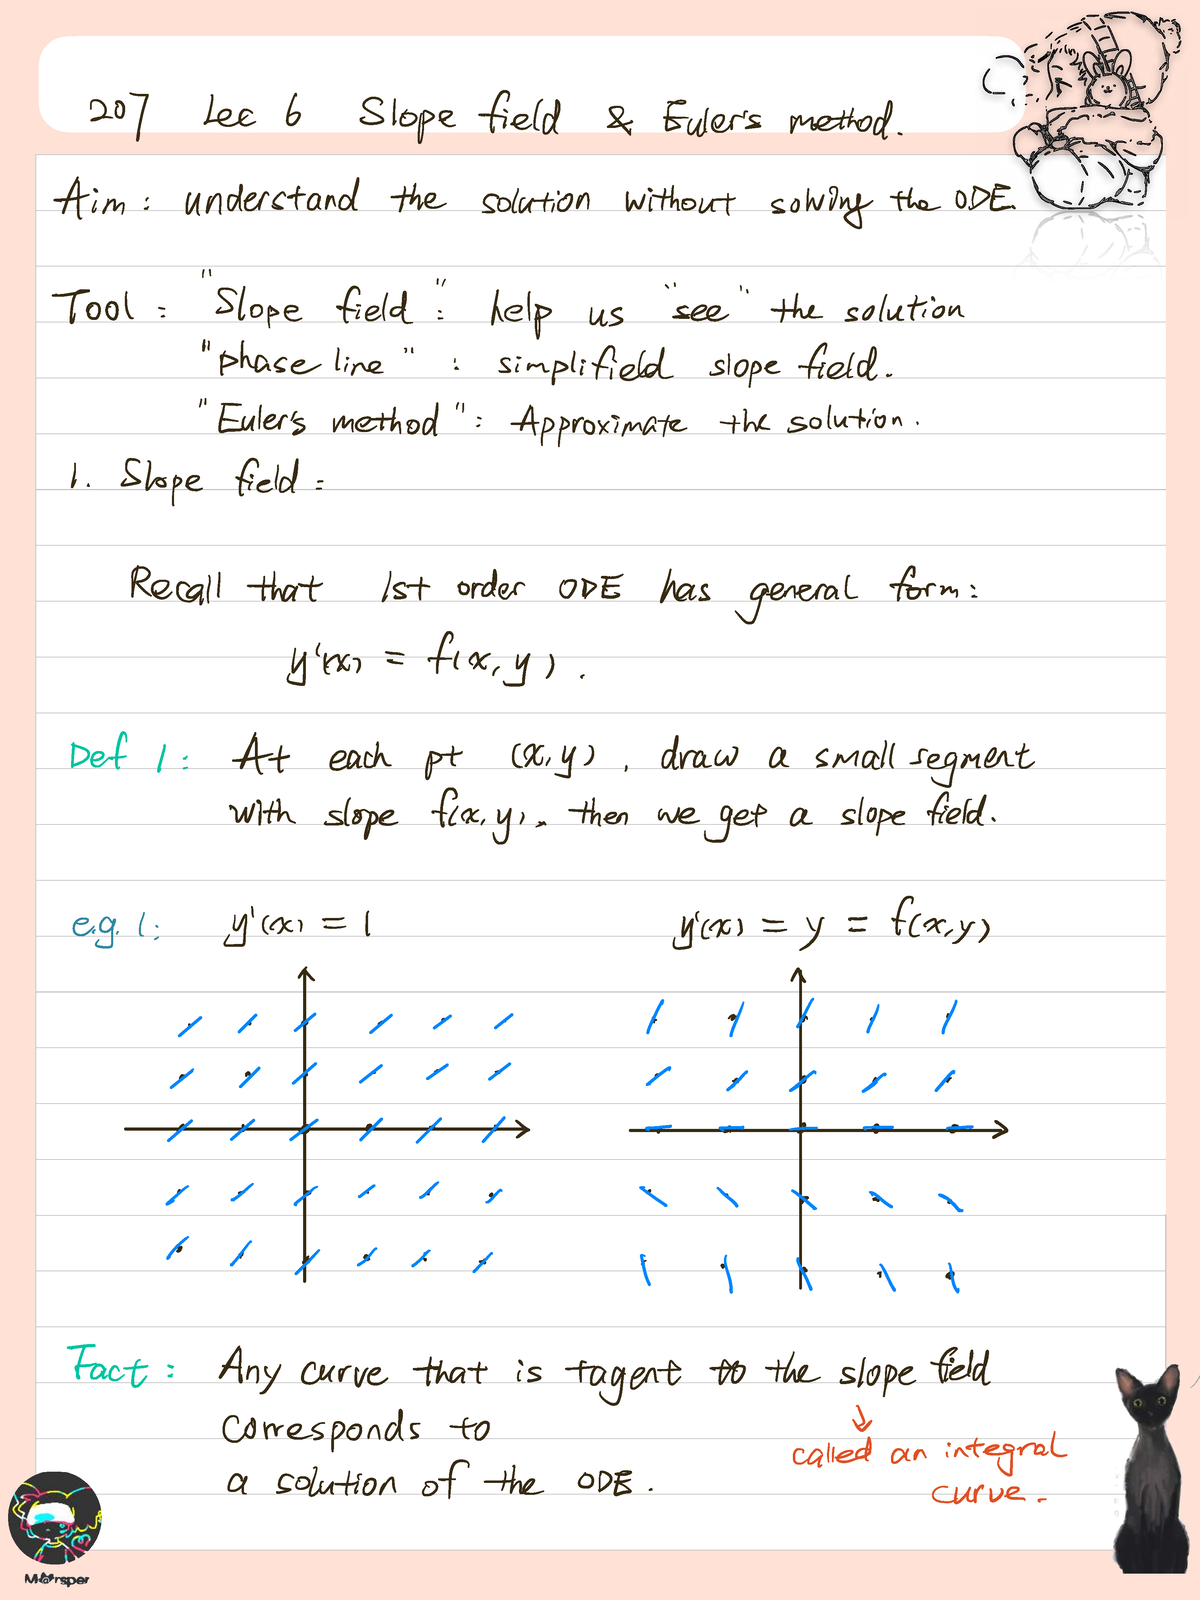 207 Lec 6 Slope field & Euler's method.
Aim: understand the solution without solving the ODE.
Tool: "Slope field": help us "see" the solution
"phase line": simplifield slope field.
"Euler's method": Approximate the solution.
1. Slope field:
Recall that 1st order ODE has general form:
y'(x) = f(x, y).
Def 1: At each pt (x, y), draw a small segment
with slope f(x, y), then we get a slope field.
e.g. 1: y'(x) = 1 y'(x) = y = f(x,y)
Fact: Any curve that is tagent to the slope field
corresponds to
a solution of the ODE.
↓
called an integral
curve.
M@rsper